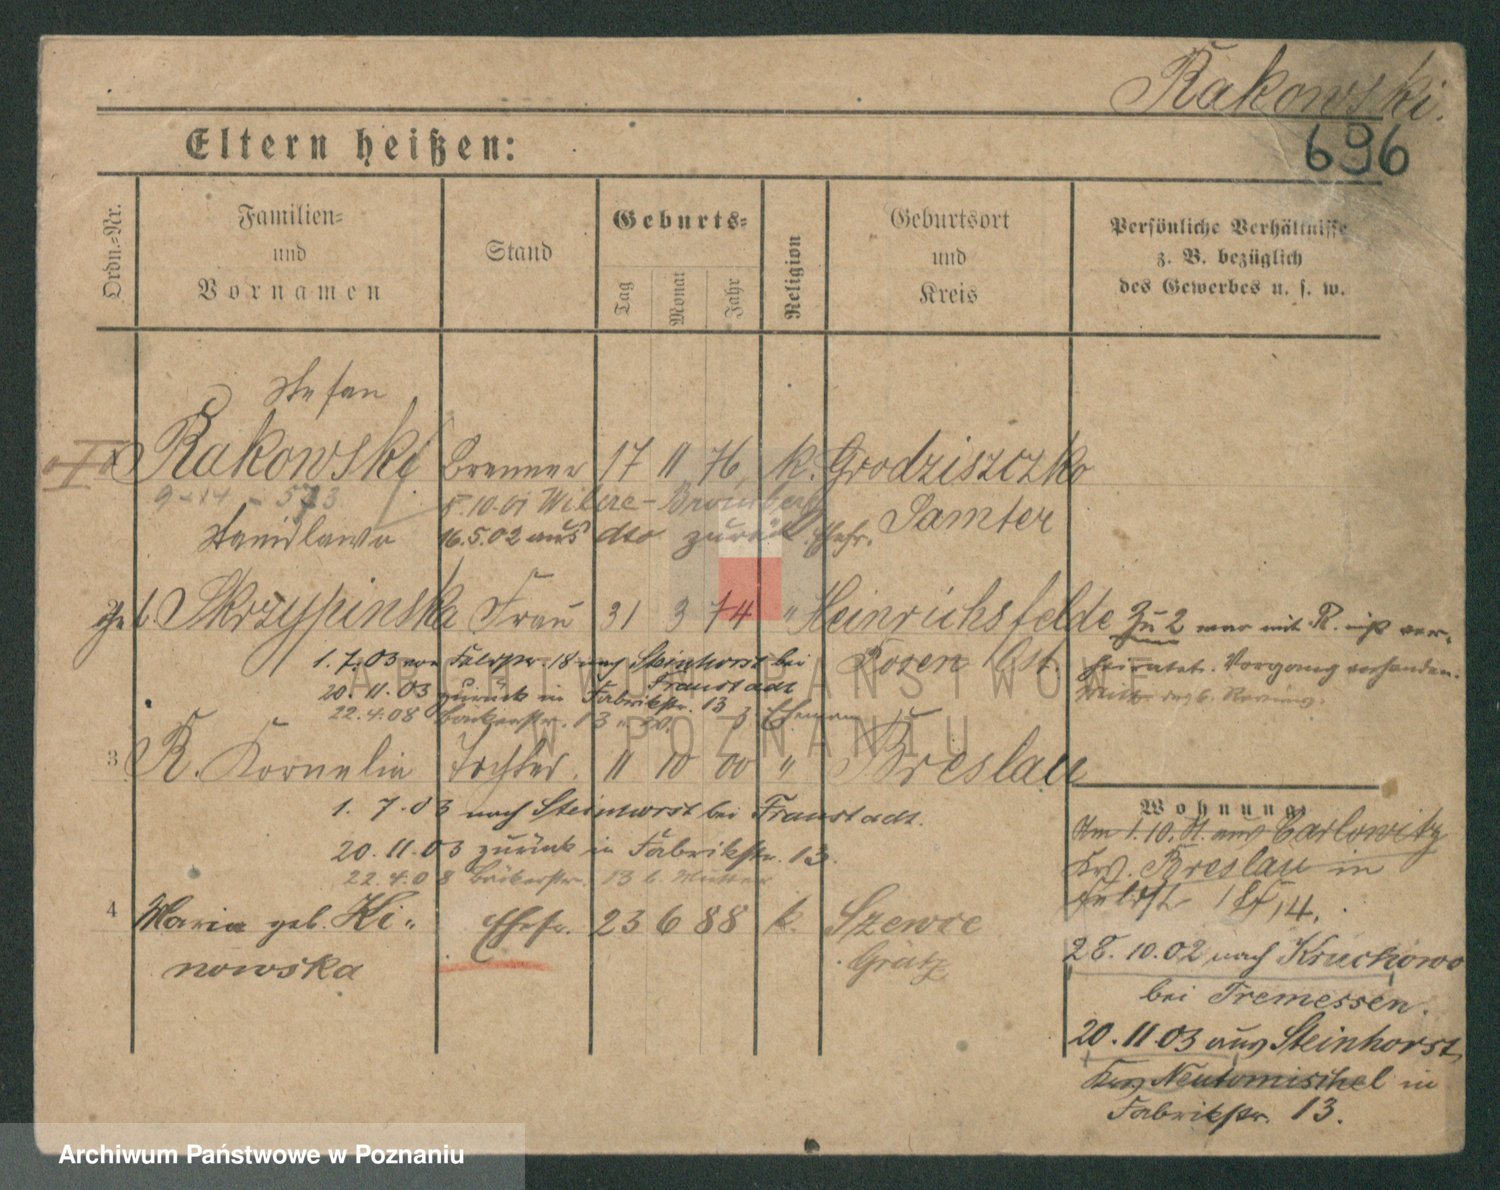 Rakowski.
696
Eltern heißen:
Ordn.-Nr.
Familien-
und
Vornamen
Stand
Geburts-
Tag
Monat
Jahr
Religion
Geburtsort
und
Kreis
Persönliche Verhältnisse
z. B. bezüglich
des Gewerbes u. s. w.
Stefan
Rakowski Brenner 17 11 76 k. Grodziszczko
9-14-573
5.10.01 Wilcze-Bromberg
Samter
Stanislawa 16.5.02 aus dto zurück. Ehefr.
geb. Skrzypinska Frau 31 3 74 " Heinrichsfelde
Posen Ost.
Zu 2 war mit R. nicht ver-
heiratet. Vorgang vorhanden.
1.7.03 von Feldstr. 18 nach Steinhorst bei
Fraustadt
20.11.03 zurück in Fabrikstr. 13
22.4.08 Bäckerstr. 13 Ehemann
3 R. Kornelia Tochter. 11 10 00 " Breslau
1.7.03 nach Steinhorst bei Fraustadt.
20.11.03 zurück in Fabrikstr. 13.
22.4.08 Bäckerstr. 13 b. Mutter
4 Maria geb. Ki- Ehefr. 23 6 88 k. Szewce
nowska Grätz
Wohnung:
Am 1.10.01 aus Carlowitz
Krs. Breslau in
Feldst 18 I, 4.
28.10.02 nach Kruchowo
bei Tremessen.
20.11.03 aus Steinhorst
Krs Neutomischel in
Fabrikstr. 13.
ARCHIWUM PAŃSTWOWE
W POZNANIU
Archiwum Państwowe w Poznaniu